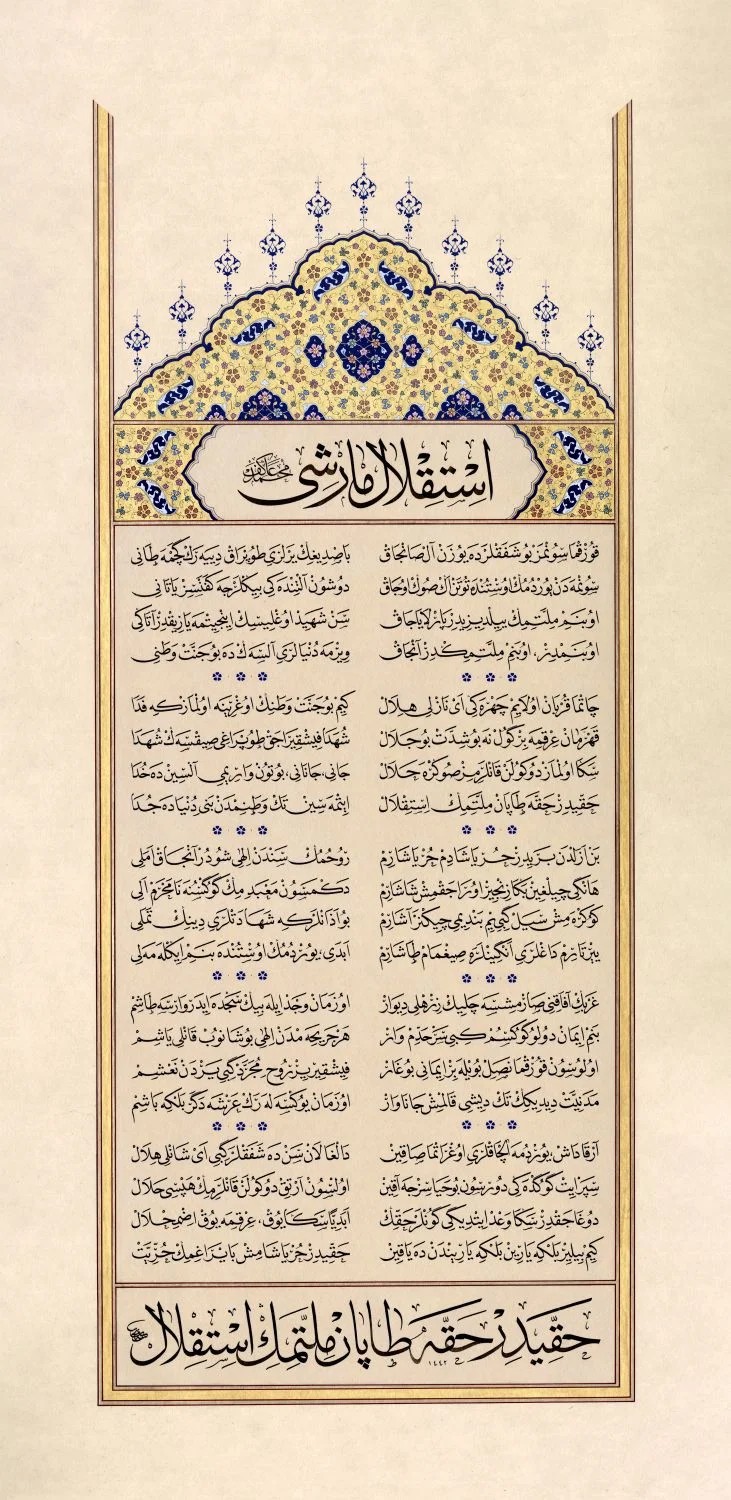 استقلال مارشى
محمد عاكف
قورقما سونمز بو شفقلرده يوزن آل صانجاق
سونمه دن يوردمك اوستنده توتن اك صوك اوجاق
او بنم ملتمك ييلديزيدر پارلاياجاق
او بنمدر، او بنم ملتمكدر آنجاق
چاتما قربان اولايم چهره كى اى نازلى هلال
قهرمان عرقمه بر كول نه بو شدت بو جلال
سكا اولماز دوكولن قانلرمز صوكره حلال
حقيدر حقه طاپان ملتمك استقلال
بن ازلدن بريدر حر ياشادم حر ياشارم
هانكى چيلغين بكا زنجير اوراجقمش شاشارم
كوكره مش سيل كبى يم بنديمى چيكنر آشارم
ييرتارم داغلرى انكينلره صيغمام طاشارم
غربك آفاقنى صارمشسه چليك زرهلى ديوار
بنم ايمان دولو كوكسم كبى سرحدم وار
اولوسون قورقما نصل بويله بر ايمانى بوغار
مدنيت ديديكك تك ديشى قالمش جاناوار
آرقاداش، يوردمه آلچاقلرى اوغراتما صاقين
سپر ايت كوكده كى دورسون بو حياسزجه آقين
دوغاجقدر سكا وعد ايتديكى كونلر حقك
كيم بيلير بلكه يارين بلكه ياريندن ده ياقين
باصديغك يرلرى طوپراق دييه رك كچمه طانى
دوشون آلتنده كى بيكلرجه كفنسز ياتانى
سن شهيد اوغليسك اينجيتمه يازيقدر آتاكى
ويرمه دنيالرى آلسه ك ده بو جنت وطنى
كيم بو جنت وطنك اوغرينه اولمازكه فدا
شهدا فيشقيراجق طوپراغى صيقسه ك شهدا
جانى، جانانى، بوتون واريمى آلسين ده خدا
ايتمه سين تك وطنمدن بنى دنياده جدا
روحمك سندن الهى شودر آنجاق املى
دكمسون معبدمك كوكسنه نامحرم الى
بو اذانلركه شهادتلرى دينك تملى
ابدى، يوردمك اوستنده بنم ايكله مه لى
او زمان وجد ايله بيك سجده ايدر وارسه طاشم
هر جريحه مدن الهى بوشانوب قانلى ياشم
فيشقيرير روح مجرد كبى يردن نعشم
او زمان يوكسله رك عرشه دكر بلكه باشم
دالغالان سن ده شفقلر كبى اى شانلى هلال
اولسون آرتق دوكولن قانلرمك هپسى حلال
ابديا سكا يوق، عرقمه يوق اضمحلال
حقيدر حر ياشامش بايراغمك حريت
حقيدر حقه طاپان ملتمك استقلال
١٤٤٢